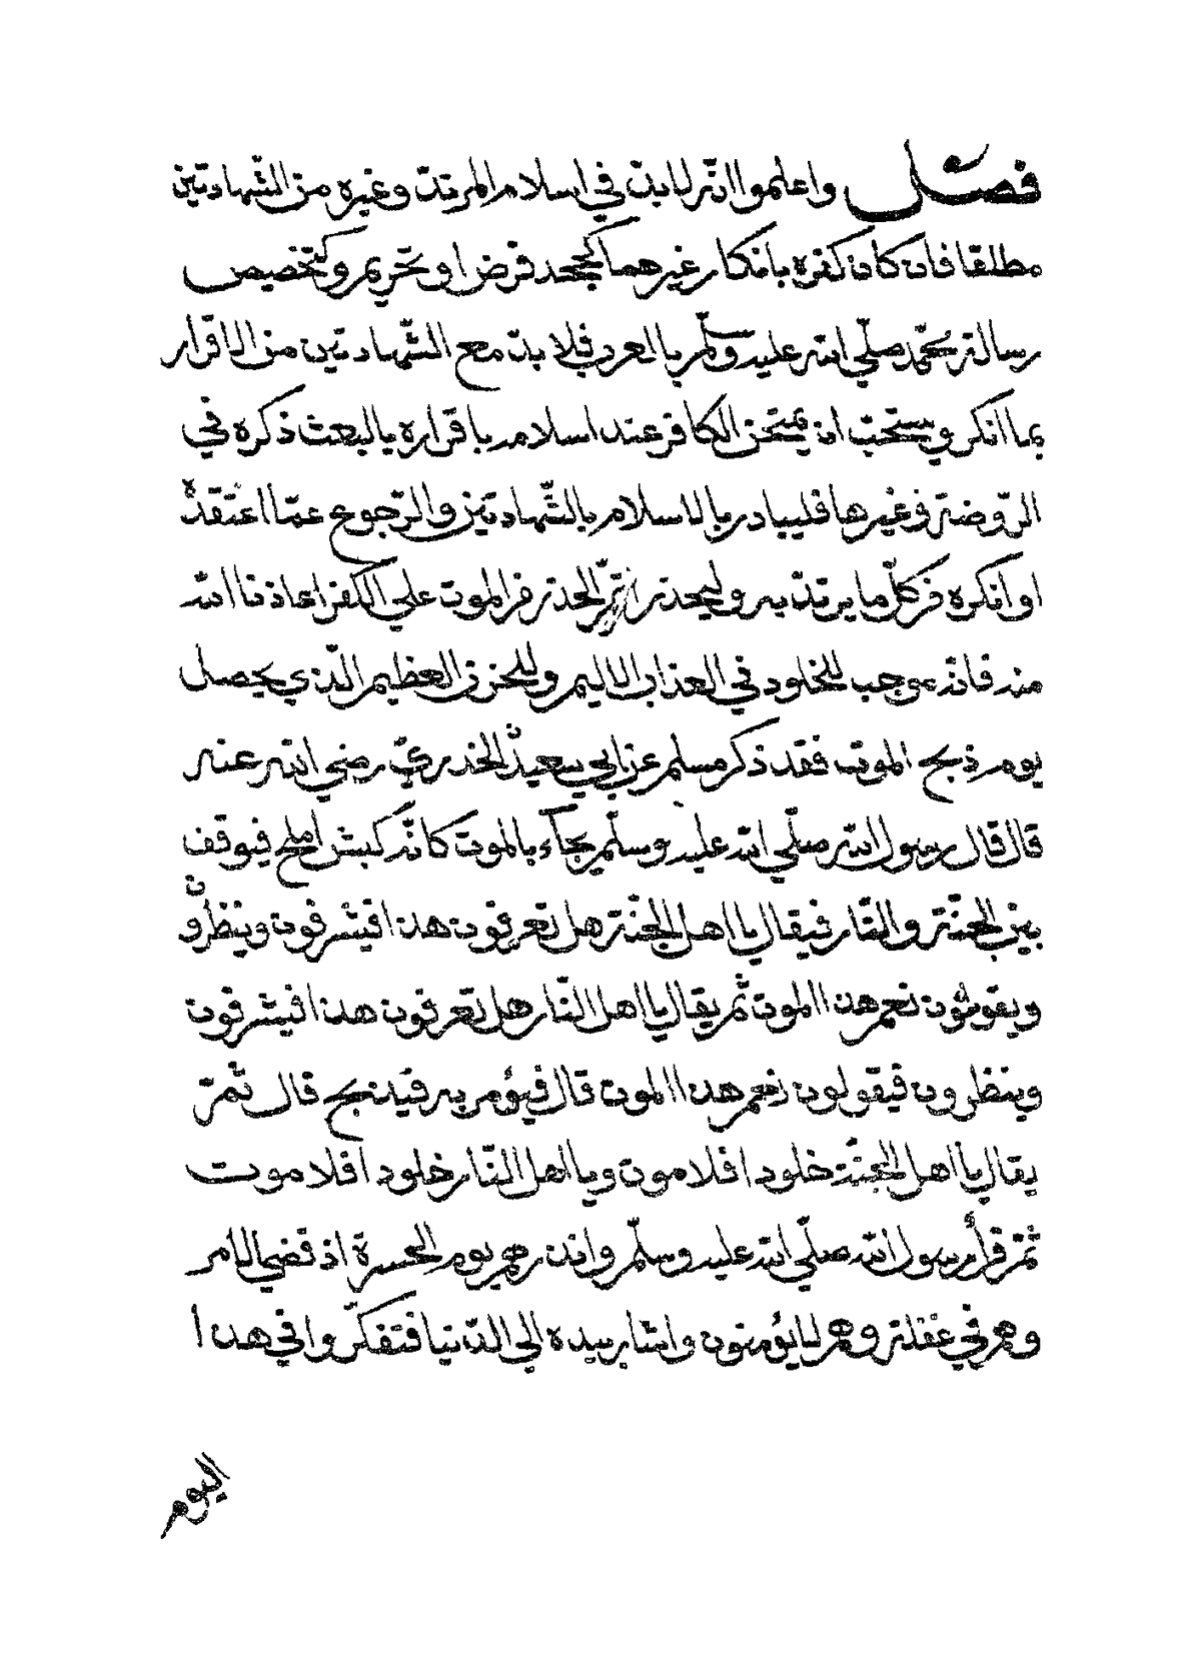 فصل واعلموا انّه لا بدّ في اسلام المرتدّ وغيره من الشّهادتين
مطلقا فان كان كفره بانكار غيرهما كجحد فرض او تحريم وكتخصيص
رسالة محمّد صلّي الله عليه وسلّم بالعرب فلا بدّ مع الشّهادتين من الاقرار
بما انكر ويستحبّ ان يمتحن الكافر عند اسلامه باقراره بالبعث ذكره في
الرّوضة وغيرها فليبادر بالاسلام بالشّهادتين والرّجوع عمّا اعتقدہ
او انكره من كلّ ما يرتدّ به وليحذر ثمّ ليحذر من الموت علي الكفر اعاذنا الله
منه فانّه موجب للخلود في العذاب الاليم وللحزن العظيم الّذي يحصل
يوم ذبح الموت فقد ذكر مسلم عن ابي سعيد الخدريّ رضي الله عنه
قال قال رسول الله صلّي الله عليه وسلّم يجآء بالموت كانّه كبش املح فيوقف
بين الجنّة والنّار فيقال يا اهل الجنّة هل تعرفون هذا فيشرفون وينظرون
ويقولون نعم هذا الموت ثمّ يقال يا اهل النّار هل تعرفون هذا فيشرفون
وينظرون فيقولون نعم هذا الموت قال فيؤمر به فيذبح قال ثمّ
يقال يا اهل الجنّة خلود افلا موت ويا اهل النّار خلود افلا موت
ثمّ قرأ رسول الله صلّي الله عليه وسلّم وانذرهم يوم الحسرة اذ قضي الأمر
وهم في غفلة وهم لا يؤمنون واشار بيده الي الدّنيا فتفكّروا في هذا
اليوم